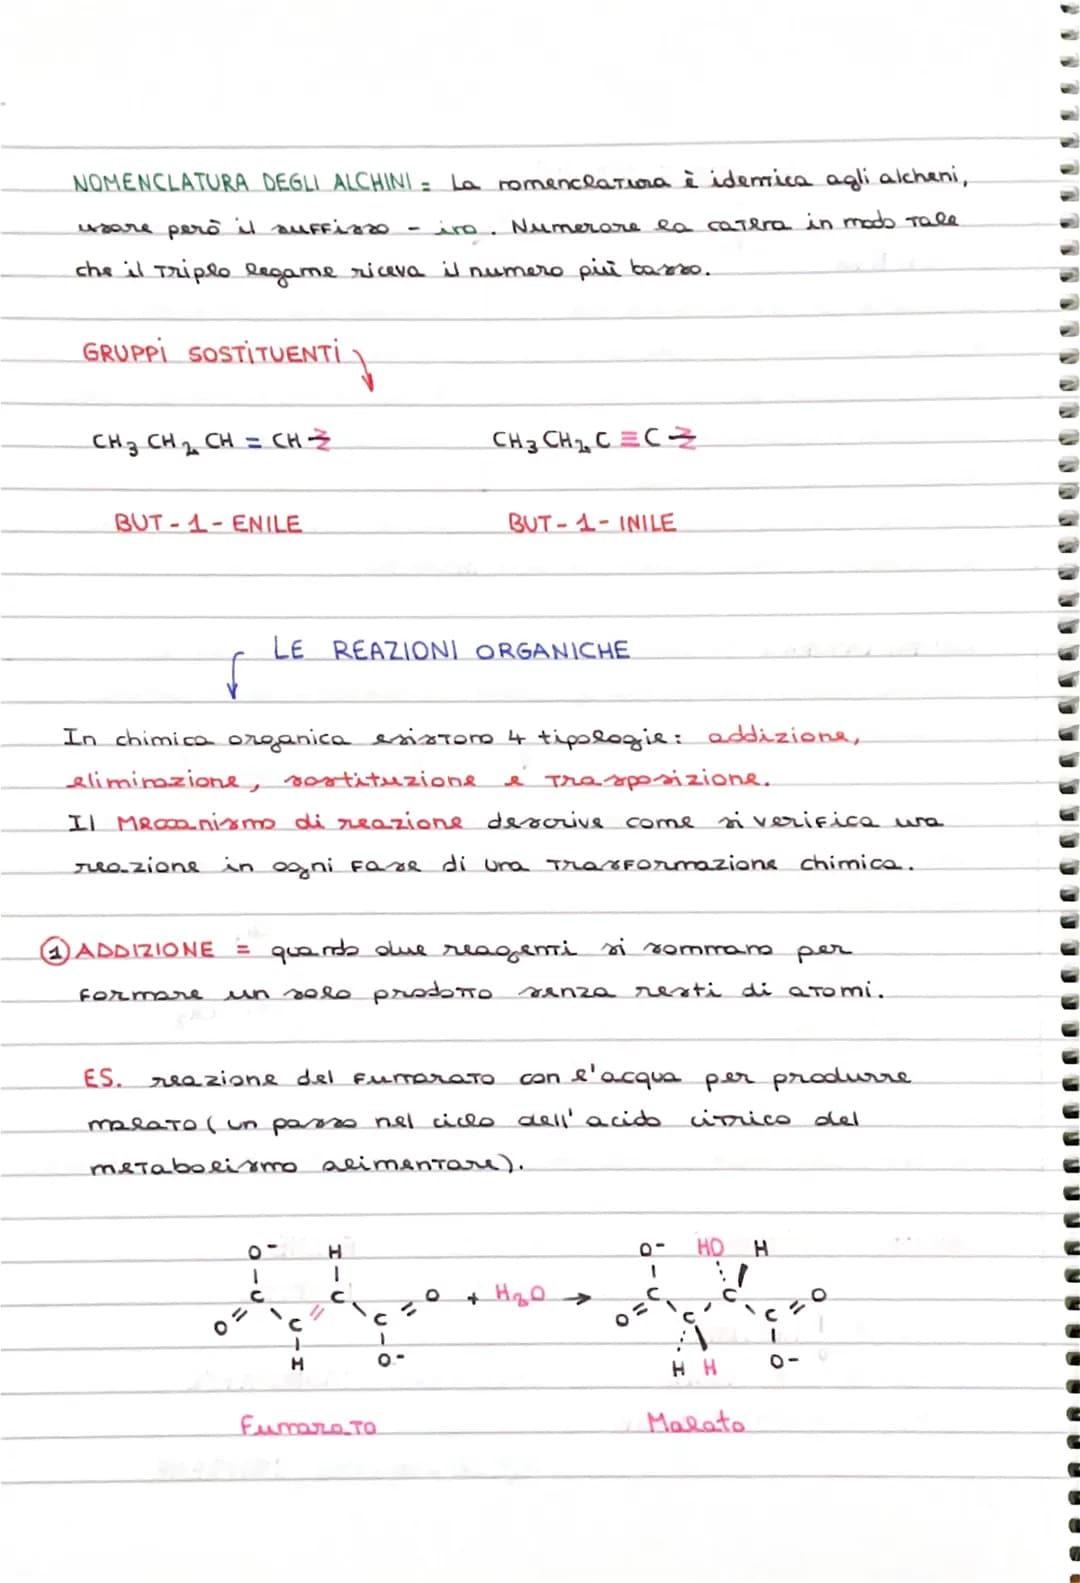 NOMENCLATURA DEGLI ALCHINI = La nomenclatura è identica agli alcheni,
usare però il suffisso -ino. Numerare la catena in modo tale
che il triplo legame riceva il numero più basso.
GRUPPI SOSTITUENTI
CH3 CH2 CH = CH CH3 CH2 C ≡ C
BUT-1-ENILE BUT-1-INILE
LE REAZIONI ORGANICHE
In chimica organica esistono 4 tipologie: addizione,
eliminazione, sostituzione e trasposizione.
Il meccanismo di reazione descrive come si verifica una
reazione in ogni fase di una trasformazione chimica.
1 ADDIZIONE = quando due reagenti si sommano per
formare un solo prodotto senza resti di atomi.
ES. reazione del fumarato con l'acqua per produrre
malato (un passo nel ciclo dell'acido citrico del
metabolismo alimentare).
O- H O- HO H
C C O + H2O → C C O
O C C O C C
H O- H H O-
Fumarato Malato